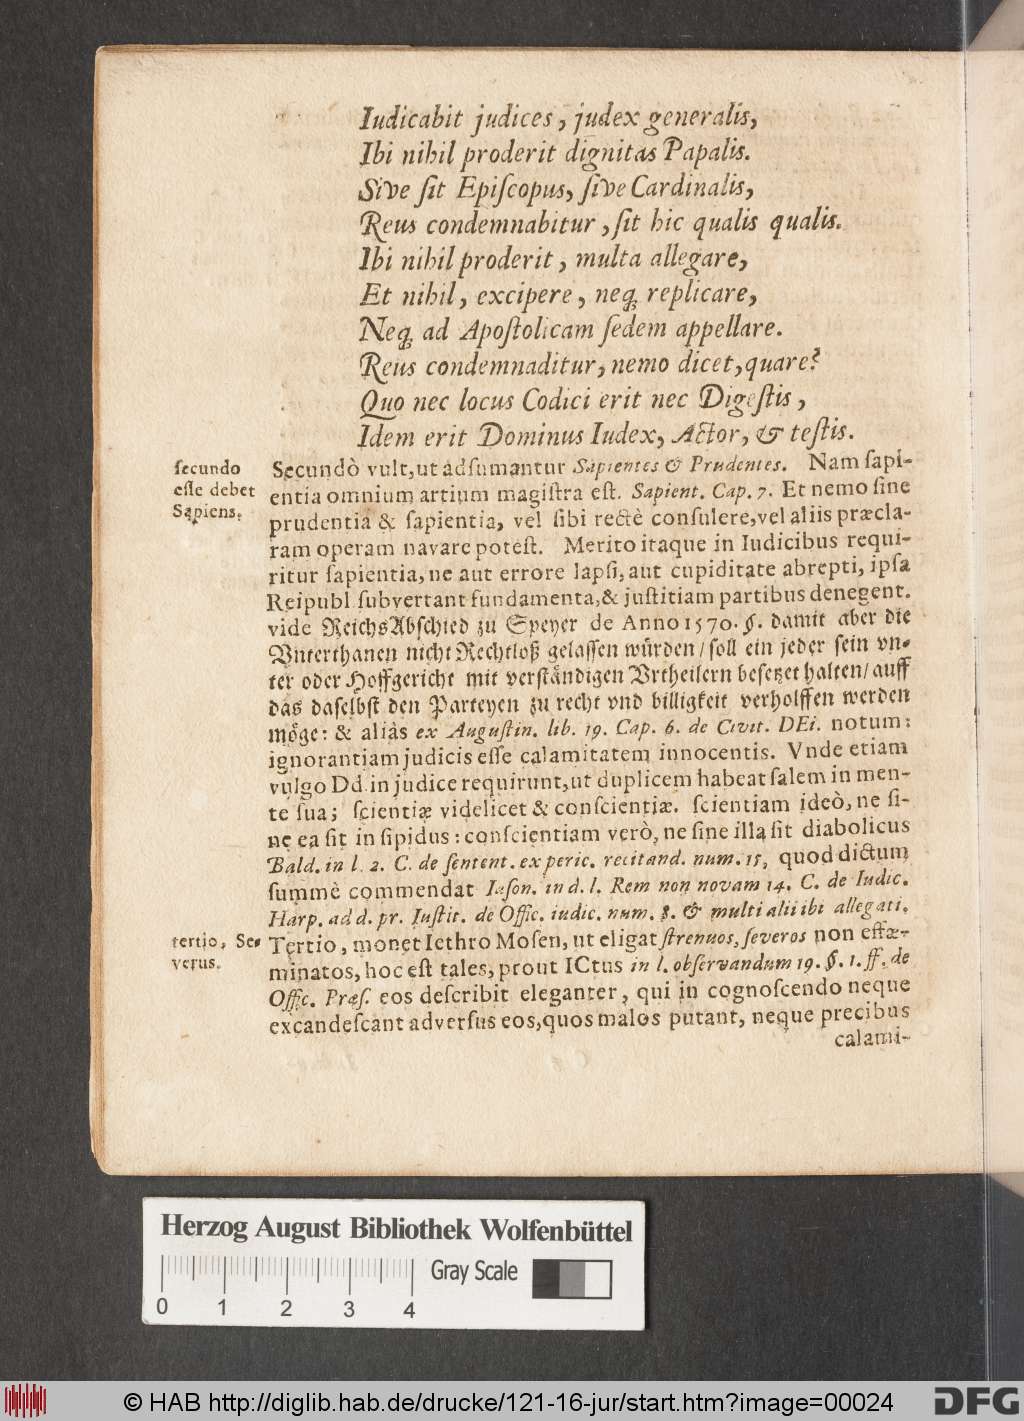 Iudicabit judices, judex generalis,
Ibi nihil proderit dignitas Papalis.
Sive ſit Epiſcopus, ſive Cardinalis,
Reus condemnabitur, ſit hic qualis qualis.
Ibi nihil proderit, multa allegare,
Et nihil, excipere, neq; replicare,
Neq; ad Apoſtolicam ſedem appellare.
Reus condemnaditur, nemo dicet, quare?
Quo nec locus Codici erit nec Digeſtis,
Idem erit Dominus Iudex, Actor, & teſtis.
ſecundo
eſſe debet
Sapiens.
Secundò vult, ut adſumantur Sapientes & Prudentes. Nam ſapi-
entia omnium artium magiſtra eſt. Sapient. Cap. 7. Et nemo ſine
prudentia & ſapientia, vel ſibi rectè conſulere, vel aliis præcla-
ram operam navare poteſt. Merito itaque in Iudicibus requi-
ritur ſapientia, ne aut errore lapſi, aut cupiditate abrepti, ipſa
Reipubl ſubvertant fundamenta, & juſtitiam partibus denegent.
vide ReichsAbſchied zu Speyer de Anno 1570. §. damit aber die
Vnterthanen nicht Rechtloß gelaſſen würden/ ſoll ein jeder ſein vn-
ter oder Hoffgericht mit verſtändigen Vrtheilern beſetzet halten/ auff
das daſelbſt den Parteyen zu recht vnd billigkeit verholffen werden
möge: & aliàs ex Auguſtin. lib. 19. Cap. 6. de Civit. DEi. notum:
ignorantiam judicis eſſe calamitatem innocentis. Vnde etiam
vulgo Dd. in judice requirunt, ut duplicem habeat ſalem in men-
te ſua; ſcientiæ videlicet & conſcientiæ. ſcientiam ideò, ne ſi-
ne ea ſit in ſipidus: conſcientiam verò, ne ſine illa ſit diabolicus
Bald. in l. 2. C. de ſentent. ex peric. recitand. num. 15, quod dictum
ſummè commendat Iaſon. in d. l. Rem non novam 14. C. de Iudic.
Harp. ad d. pr. Inſtit. de Offic. iudic. num. 8. & multi alii ibi allegati.
tertio, Se-
verus.
Tertio, monet Iethro Moſen, ut eligat ſtrenuos, ſeveros non effæ-
minatos, hoc eſt tales, prout ICtus in l. obſervandum 19. §. 1. ff. de
Offic. Præſ. eos deſcribit eleganter, qui in cognoſcendo neque
excandeſcant adverſus eos, quos malos putant, neque precibus
calami-
Herzog August Bibliothek Wolfenbüttel
Gray Scale
0 1 2 3 4
© HAB http://diglib.hab.de/drucke/121-16-jur/start.htm?image=00024
DFG